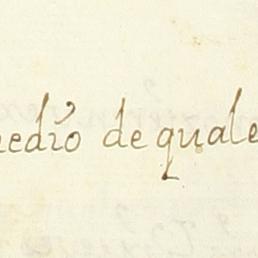 nedio de quale